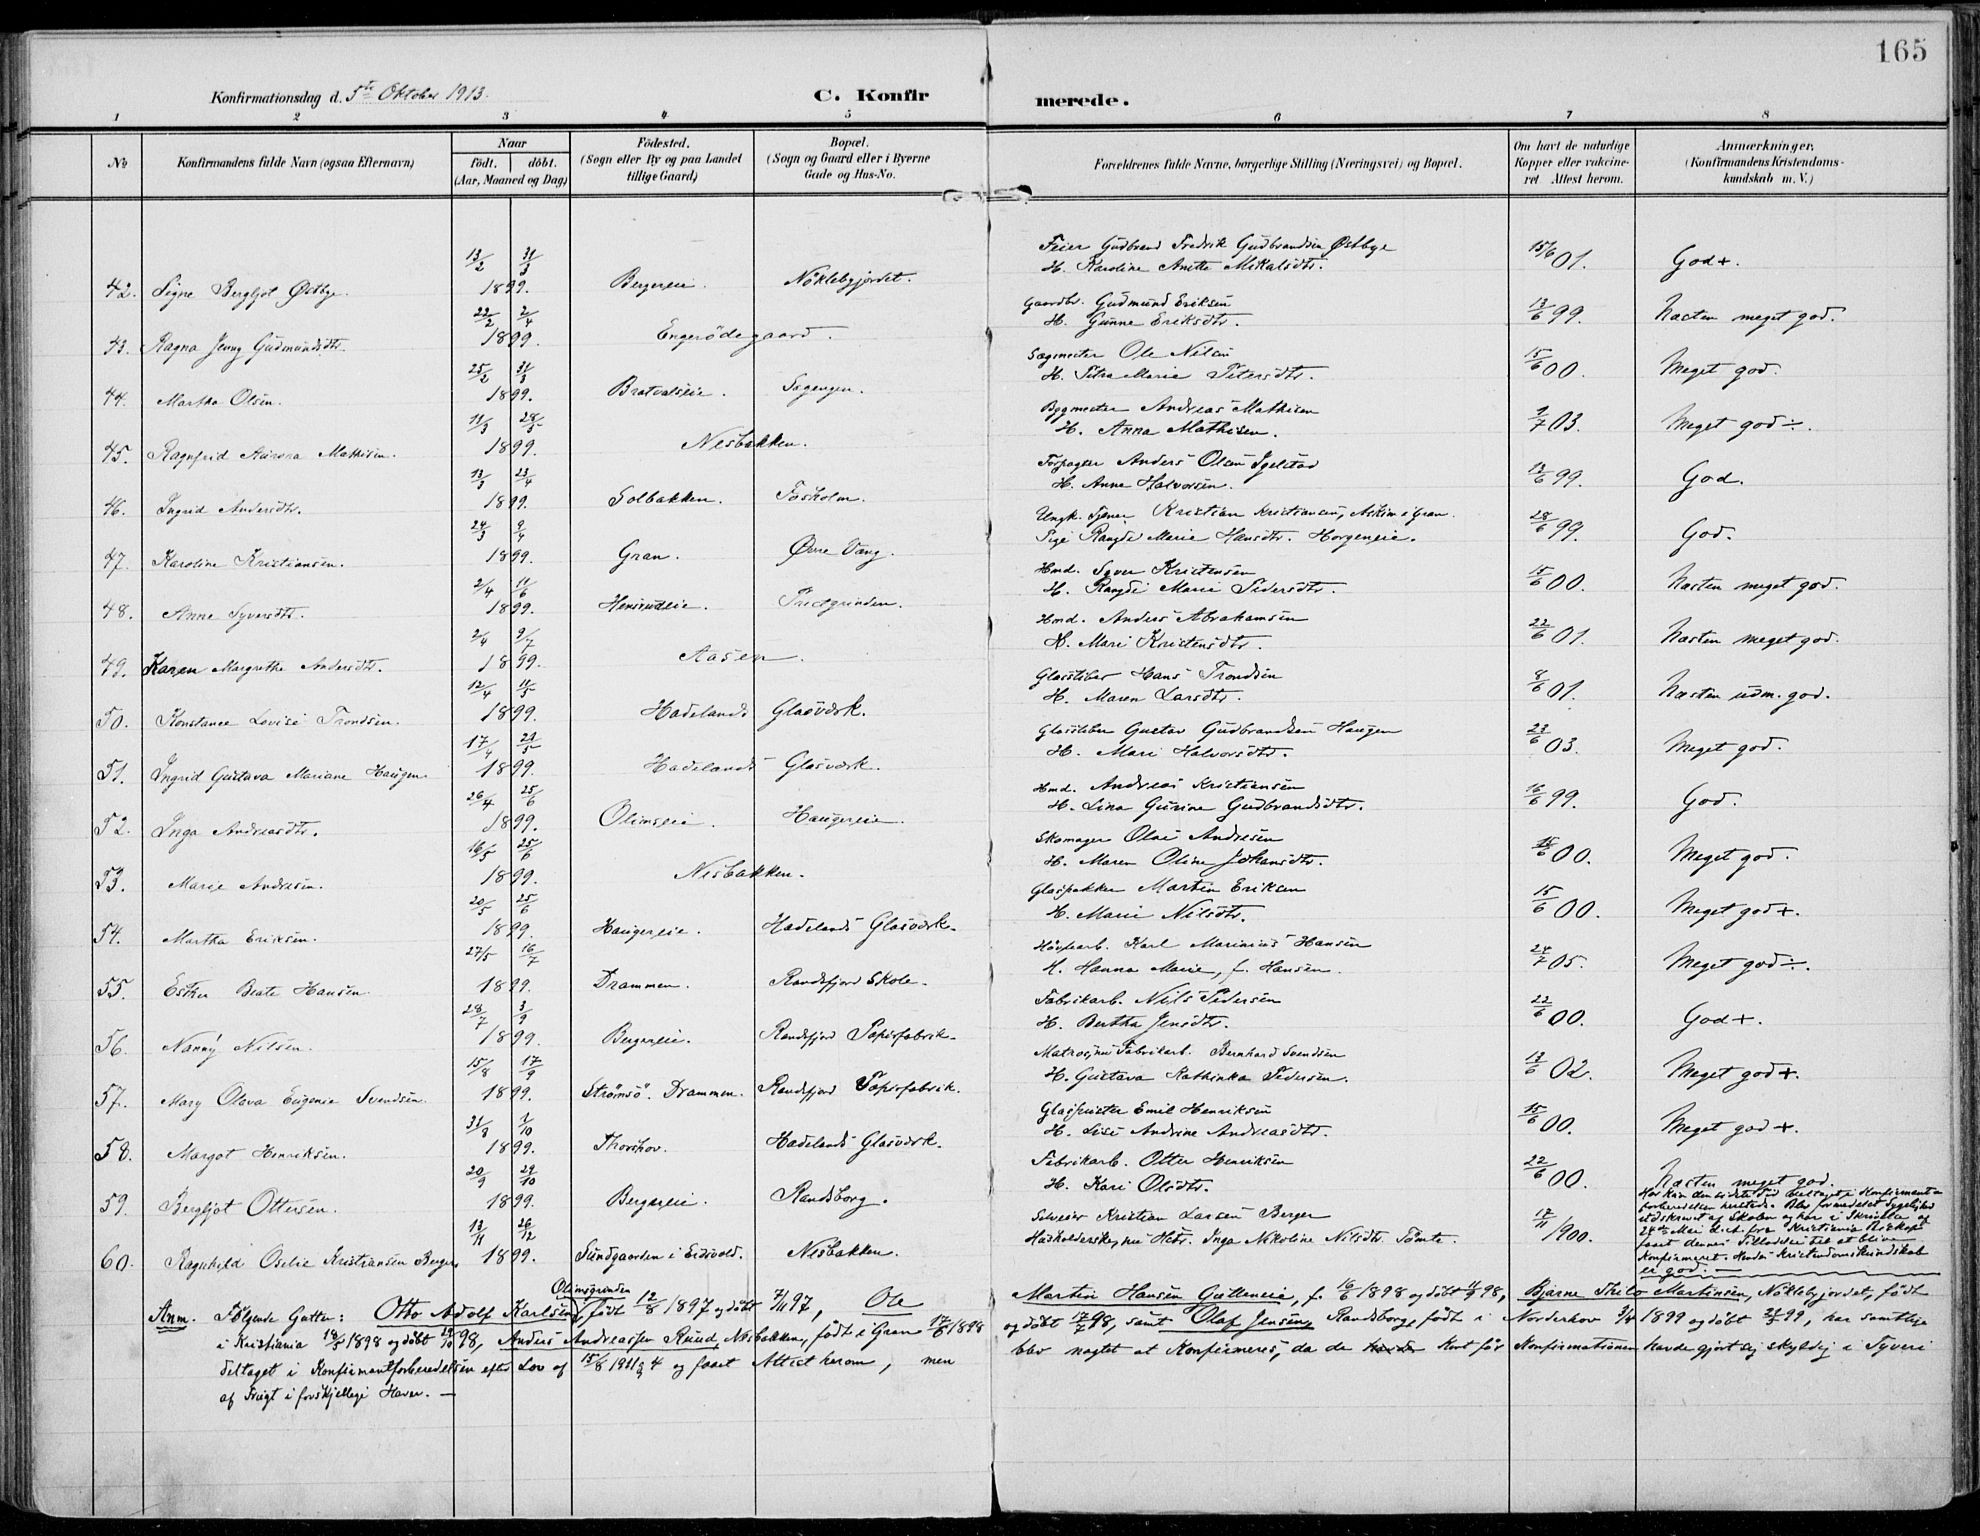 165
Konfirmationsdag d. 5te Oktober 1913.
C. Konfirmerede.
1 2 3 4 5 6 7 8
No Konfirmandens fulde Navn (ogsaa Efternavn) Naar født. døbt. (Aar, Maaned og Dag) Fødested. (Sogn eller By og paa Landet tillige Gaard) Bopæl. (Sogn og Gaard eller i Byerne Gade og Hus-No. Forældrenes fulde Navne, borgerlige Stilling (Næringsvei) og Bopæl. Om havt de naturlige Kopper eller vakcineret Attest herom. Anmærkninger. (Konfirmandens Kristendomskundskab m. V.)
42. Signe Bergljot Østbye. 13/2 31/3 1899. Bergereie. Nöklebyjordet. Feier Gudbrand Fredrik Gudbrandsen Østbye H. Karoline Anette Mikalsdtr. 15/6 01. God+.
43. Ragna Jenny Gudmundsdtr. 22/2 2/4 1899. Engerödegaard. Gaardbr. Gudmund Eriksen H. Gunne Eriksdtr. 13/6 99. Næsten meget god.
44. Martha Olsen. 25/2 31/3 1899. Bratvalseie. Sagengen. Sagmester Ole Nilsen H. Petra Marie Petersdtr. 15/6 00. Meget god.
45. Ragnfrid Aurora Mathisen. 11/3 28/5 1899. Nesbakken. Bygmester Andreas Mathisen H. Anna Mathisen. 9/7 03. Meget god÷.
46. Ingrid Andersdtr. 13/3 23/4 1899. Solbakken. Fosholm. Forpagter Anders Olsen Igelstad H. Anne Halvorsen. 13/6 99. God.
47. Karoline Kristiansen. 24/3 9/4 1899. Gran. Øvre Vang. Ungk. Tjener Kristian Kristiansen, Askim i Gran. Pige Rangdi Marie Hansdtr. Horgeneie. 28/6 99. God.
48. Anne Syversdtr. 2/4 11/6 1899. Hensrudeie. Prestgrinden. Hmd. Syver Kristensen H. Rangdi Marie Pedersdtr. 15/6 00. Næsten meget god.
49. Karen Margrethe Andersdtr. 2/4 9/7 1899. Aasen. Hmd. Anders Abrahamsen H. Mari Kristensdtr. 22/6 01. Næsten meget god.
50. Konstance Lovise Trondsen. 12/4 11/5 1899. Hadelands Glasværk. Glassliber Hans Trondsen H. Maren Larsdtr. 8/6 01. Næsten udm. god.
51. Ingrid Gustava Mariane Haugen 17/4 21/5 1899. Hadelands Glasværk. Glassliber Gustav Gudbrandsen Haugen H. Mari Halvorsdtr. 23/6 03. Meget god.
52. Inga Andreasdtr. 26/4 25/6 1899. Olimseie. Haugereie. Hmd. Andreas Kristiansen H. Lina Gurine Gudbrandsdtr. 16/6 99. God.
53. Marie Andresen. 16/5 25/6 1899. Nesbakken. Skomager Olai Andresen H. Maren Oline Johansdtr. 15/6 00. Meget god.
54. Martha Eriksen. 20/5 25/6 1899. Haugereie. Hadelands Glasværk. Glaspakker Martin Eriksen H. Marie Nilsdtr. 15/6 00. Meget god+.
55. Esther Beate Hansen 27/5 16/7 1899. Drammen. Randsfjord Skole. Høvlearb. Karl Marinius Hansen H. Hanna Marie, f. Hansen. 24/7 05. Meget god÷.
56. Nanny Nilsen. 28/7 3/9 1899. Bergereie. Randsfjord Papirfabrik. Fabrikarb. Nils Pedersen H. Bertha Jensdtr. 22/6 00. God+.
57. Mary Olava Eugenie Svendsen. 15/8 17/9 1899. Strömsö. Drammen. Randsfjord Papirfabrik. Matros, nu Fabrikarb. Bernhard Svendsen H. Gustava Kathinka Pedersen. 13/6 02. Meget god+.
58. Margot Henriksen. 31/8 1/10 1899. Thorshov. Hadelands Glasværk. Glaspuster Emil Henriksen H. Lise Andrine Andreasdtr. 15/6 00. Meget god+.
59. Bergljot Ottersen. 20/9 29/10 1899. Bergereie. Randsborg. Fabrikarb. Otter Henriksen H. Kari Olsdtr. 22/6 00. Næsten meget god.
60. Ragnhild Oselie Kristiansen Berger 13/11 26/12 1899. Sundgaarden i Eidsvold. Nesbakken. Selveier Kristian Larsen Berger Husholderske, nu Hstr. Inga Nikoline Nilsdtr. Tömte. 17/11 1900. Har kun den sidste Tid deltaget i Konfirmantforberedelsen herstedt. Blev formedelst Sygelighed udskrevet af Skolen og har i Skrivelse af 24de Mai d. A. fra Kristiania Biskop faaet dennes Tilladelse til at blive Konfirmeret. Hendes Kristendomskundskab er god. —
Anm. Fölgende Gutter: Otto Adolf Karlsen, Olimsgrinden født 12/8 1897 og døbt 7/11 97, Ole Martin Hansen Gulleneie, f. 16/6 1898 og døbt 4/9 98, Bjarne Thilo Martinsen, Nöklebyjordet, født
i Kristiania 18/5 1898 og døbt 98, Anders Andreassen Rud, Nesbakken, født i Gran 17/6 1898 og døbt 17/7 98, samt Olaf Jensen, Randsborg, født i Norderhov 3/4 1899 og døbt 99, har samtlige
deltaget i Konfirmantforberedelsen efter Lov af 15/8 1911 § 4 og faaet Attest herom, men blev nægtet at Konfirmeres, da de kort før Konfirmationen havde gjort sig skyldig i Tyveri
af Frugt i forskjellige Haver. —